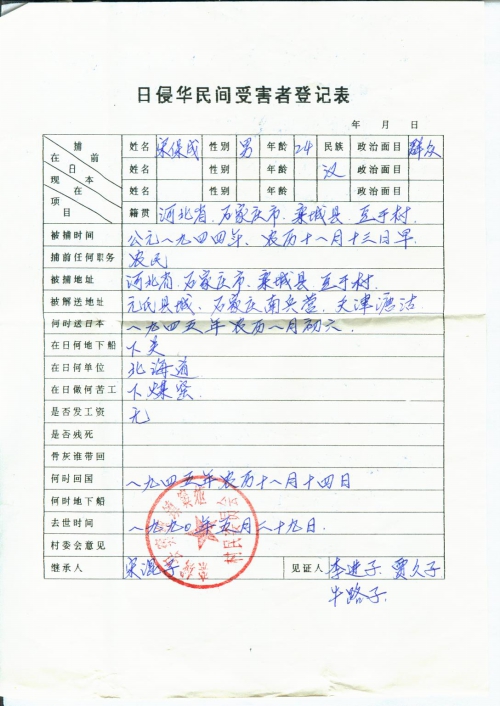 日侵华民间受害者登记表
年 月 日
捕前 在日 现在 本项目
姓名 宋保成 性别 男 年龄 24 民族 汉 政治面目 群众
姓名 性别 年龄 政治面目
姓名 性别 年龄 政治面目
籍贯 河北省.石家庄市.栾城县
被捕时间 公元一九四四年、农历十一月十三日早
捕前任何职务 农民
被捕地址 河北省.石家庄市.栾城县
被解送地址 元氏县城、石家庄南兵营、天津塘沽
何时送日本 一九四五年农历一月初六
在日何地下船 下关
在日何单位 北海道
在日做何苦工 下煤窑
是否发工资 无
是否残死
骨灰谁带回
何时回国 一九四五年农历十一月十四日
何时地下船
去世时间 一九九〇年五月二十九日.
村委会意见
继承人 宋混子 见证人 李进子.贾久子
牛路子.